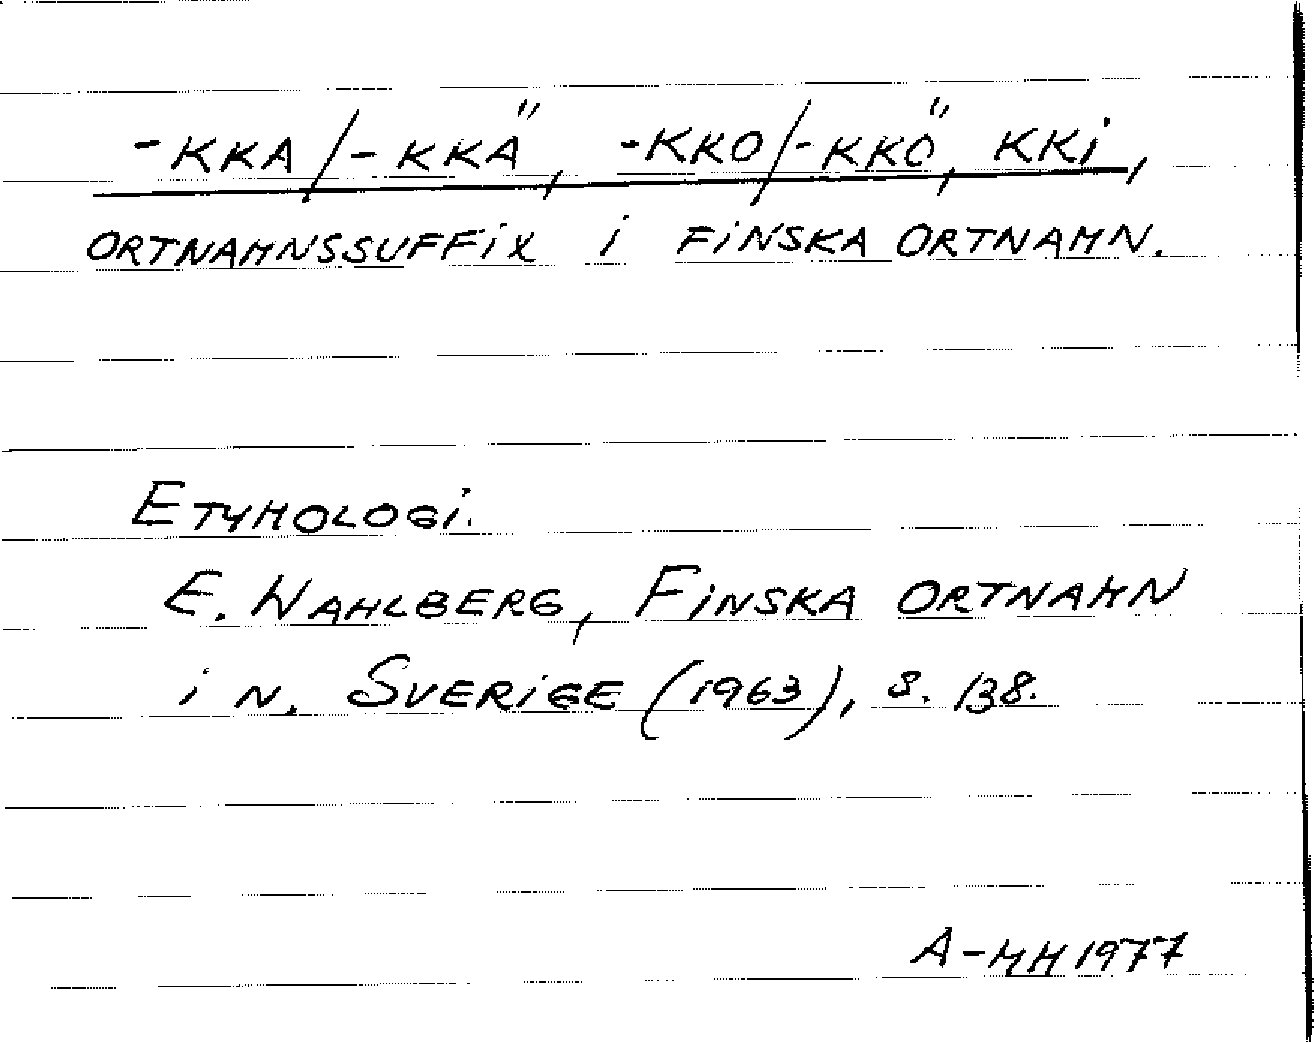 -KKA/-KKÄ, -KKO/-KKÖ, KKi,
ORTNAMNSSUFFiX i FiNSKA ORTNAMN.
ETYMOLOGi.
E. WAHLBERG, FiNSKA ORTNAMN
i N. SVERiGE (1963), S. 138.
A-MH 1977